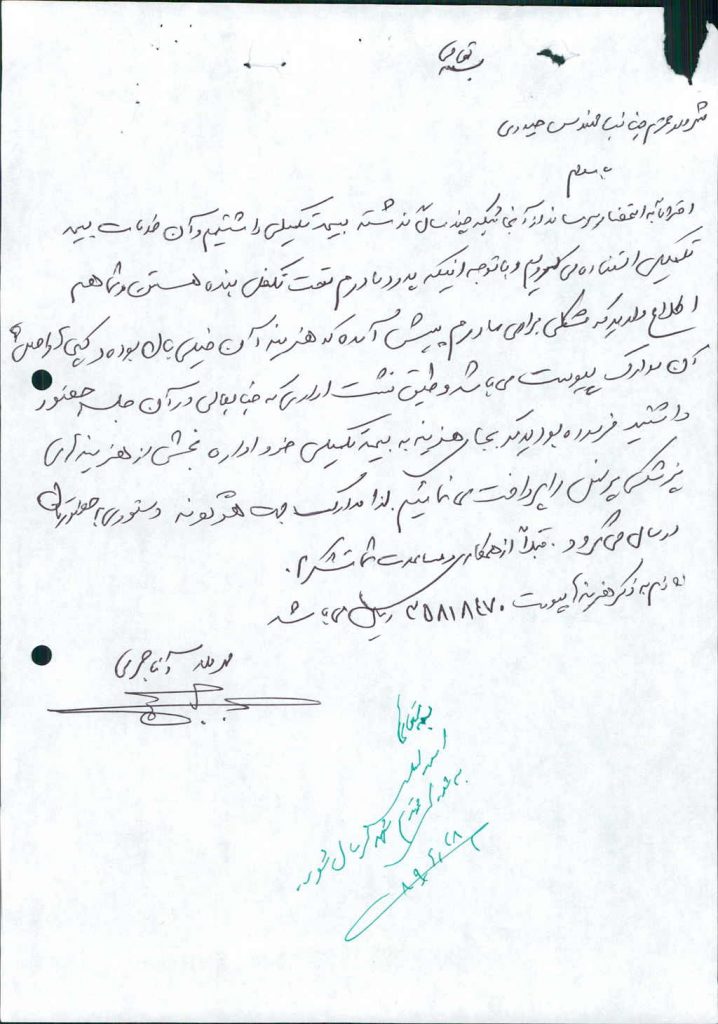 بسمه تعالی
شهردار محترم جناب مهندس حیدری
با سلام
احتراماً به استحضار میرساند از آنجائیکه چند سال گذشته بیمه تکمیلی داشتیم و از آن خدمات بیمه
تکمیلی استفاده می کردیم و با توجه اینکه پدر و مادرم تحت تکفل بنده هستن و شما هم
اطلاع دارید که مشکلی برای مادرم پیش آمده که هزینه آن خیلی بالا بوده و کپی
آن مدارک پیوست می باشد و طبق نشست اداری که جنابعالی در آن جلسه حضور
داشتید فرموده بودید که بجای هزینه به بیمه تکمیلی خود اداره بخشی از هزینه های
پزشکی پرسنل را پرداخت می نمائیم لذا مدارک جهت هر گونه دستوری به حضورتان
ارسال می گردد . قبلاً از همکاری و مساعدت شما متشکرم.
لازم به ذکر هزینه پیوست ۳۵۸۱۸۴۷۰ ریال می باشد
بسمه تعالی
به شورای محترم شهر ارسال شود.
۸۹/۶/۲۸